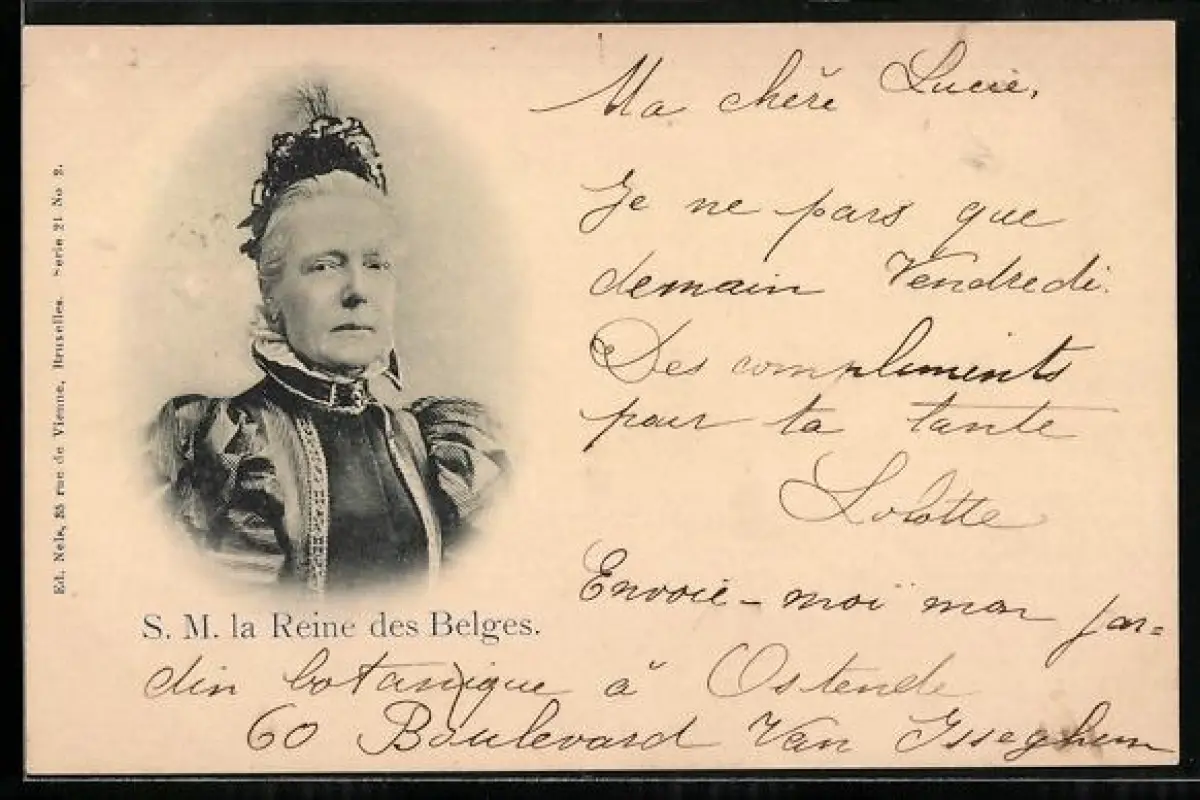 Ma chère Lucie,
Je ne pars que
demain Vendredi.
Des compliments
pour ta tante
Lolotte
Envoie-moi mon jar=
din botanique à Ostende
60 Boulevard Van Isseghem
S. M. la Reine des Belges.
Ed. Nels, 25 rue de Vienne, Bruxelles. Serie 21 No 2.